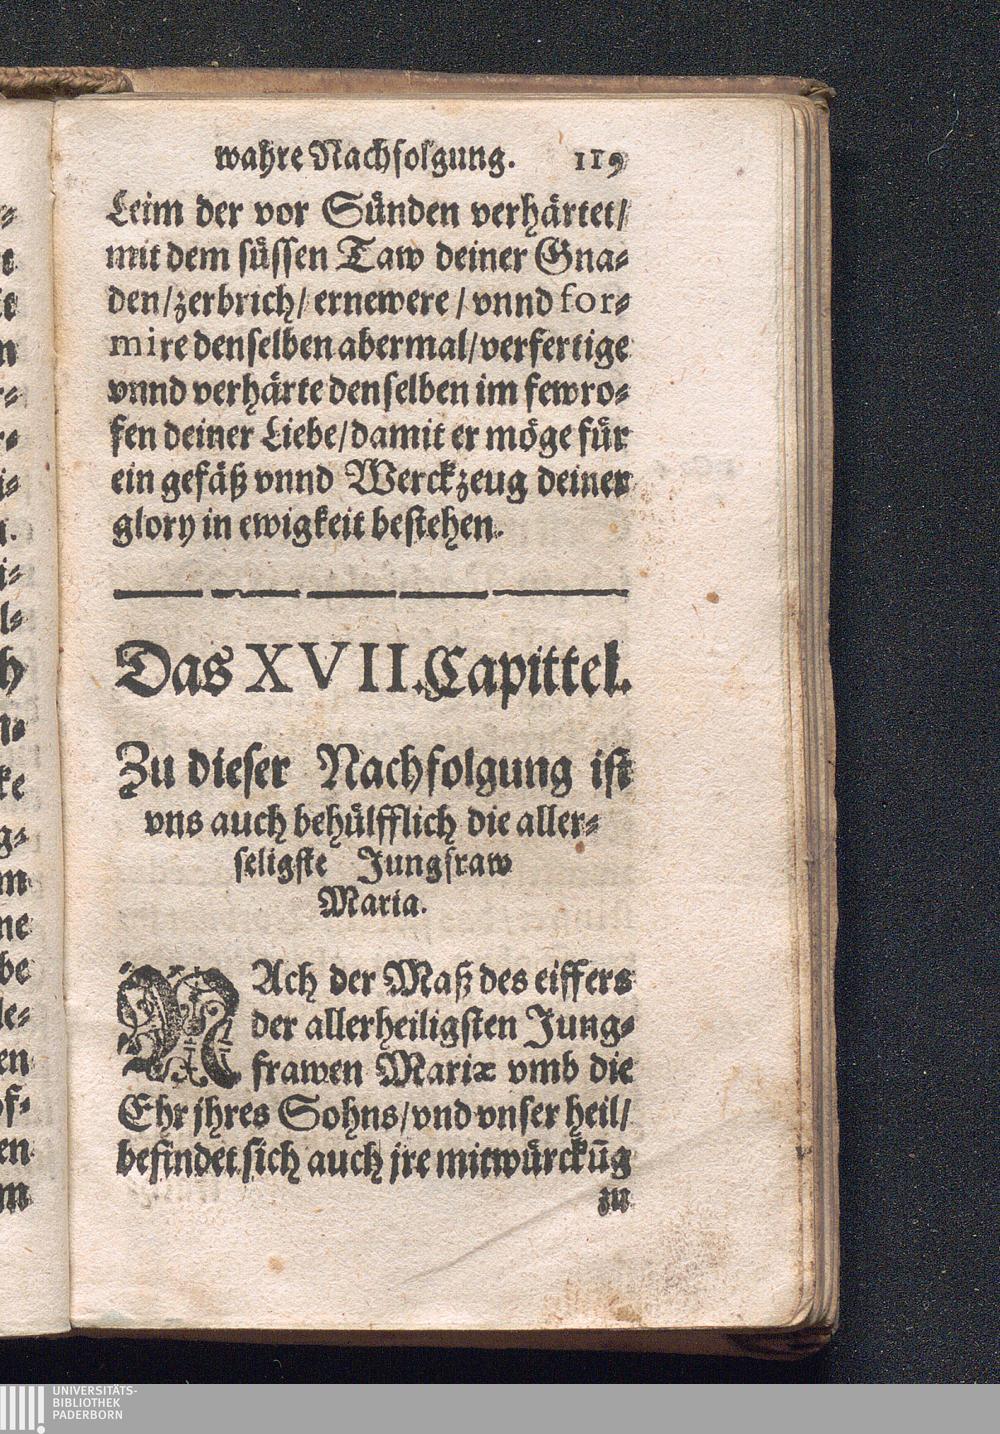 wahre Nachfolgung. 119
Leim der vor Sünden verhärtet/
mit dem süssen Taw deiner Gna-
den/zerbrich/ernewere/vnnd for-
mire denselben abermal/verfertige
vnnd verhärte denselben im fewro-
fen deiner Liebe/damit er möge für
ein gefäß vnnd Werckzeug deiner
glory in ewigkeit bestehen.
Das XVII. Capittel.
Zu dieser Nachfolgung ist
vns auch behülfflich die aller-
seligste Jungfraw
Maria.
NAch der Maß des eiffers
der allerheiligsten Jung-
frawen Mariæ vmb die
Ehr jhres Sohns/vnd vnser heil/
befindet sich auch jre mitwürckūg
zu
UNIVERSITÄTS-
BIBLIOTHEK
PADERBORN